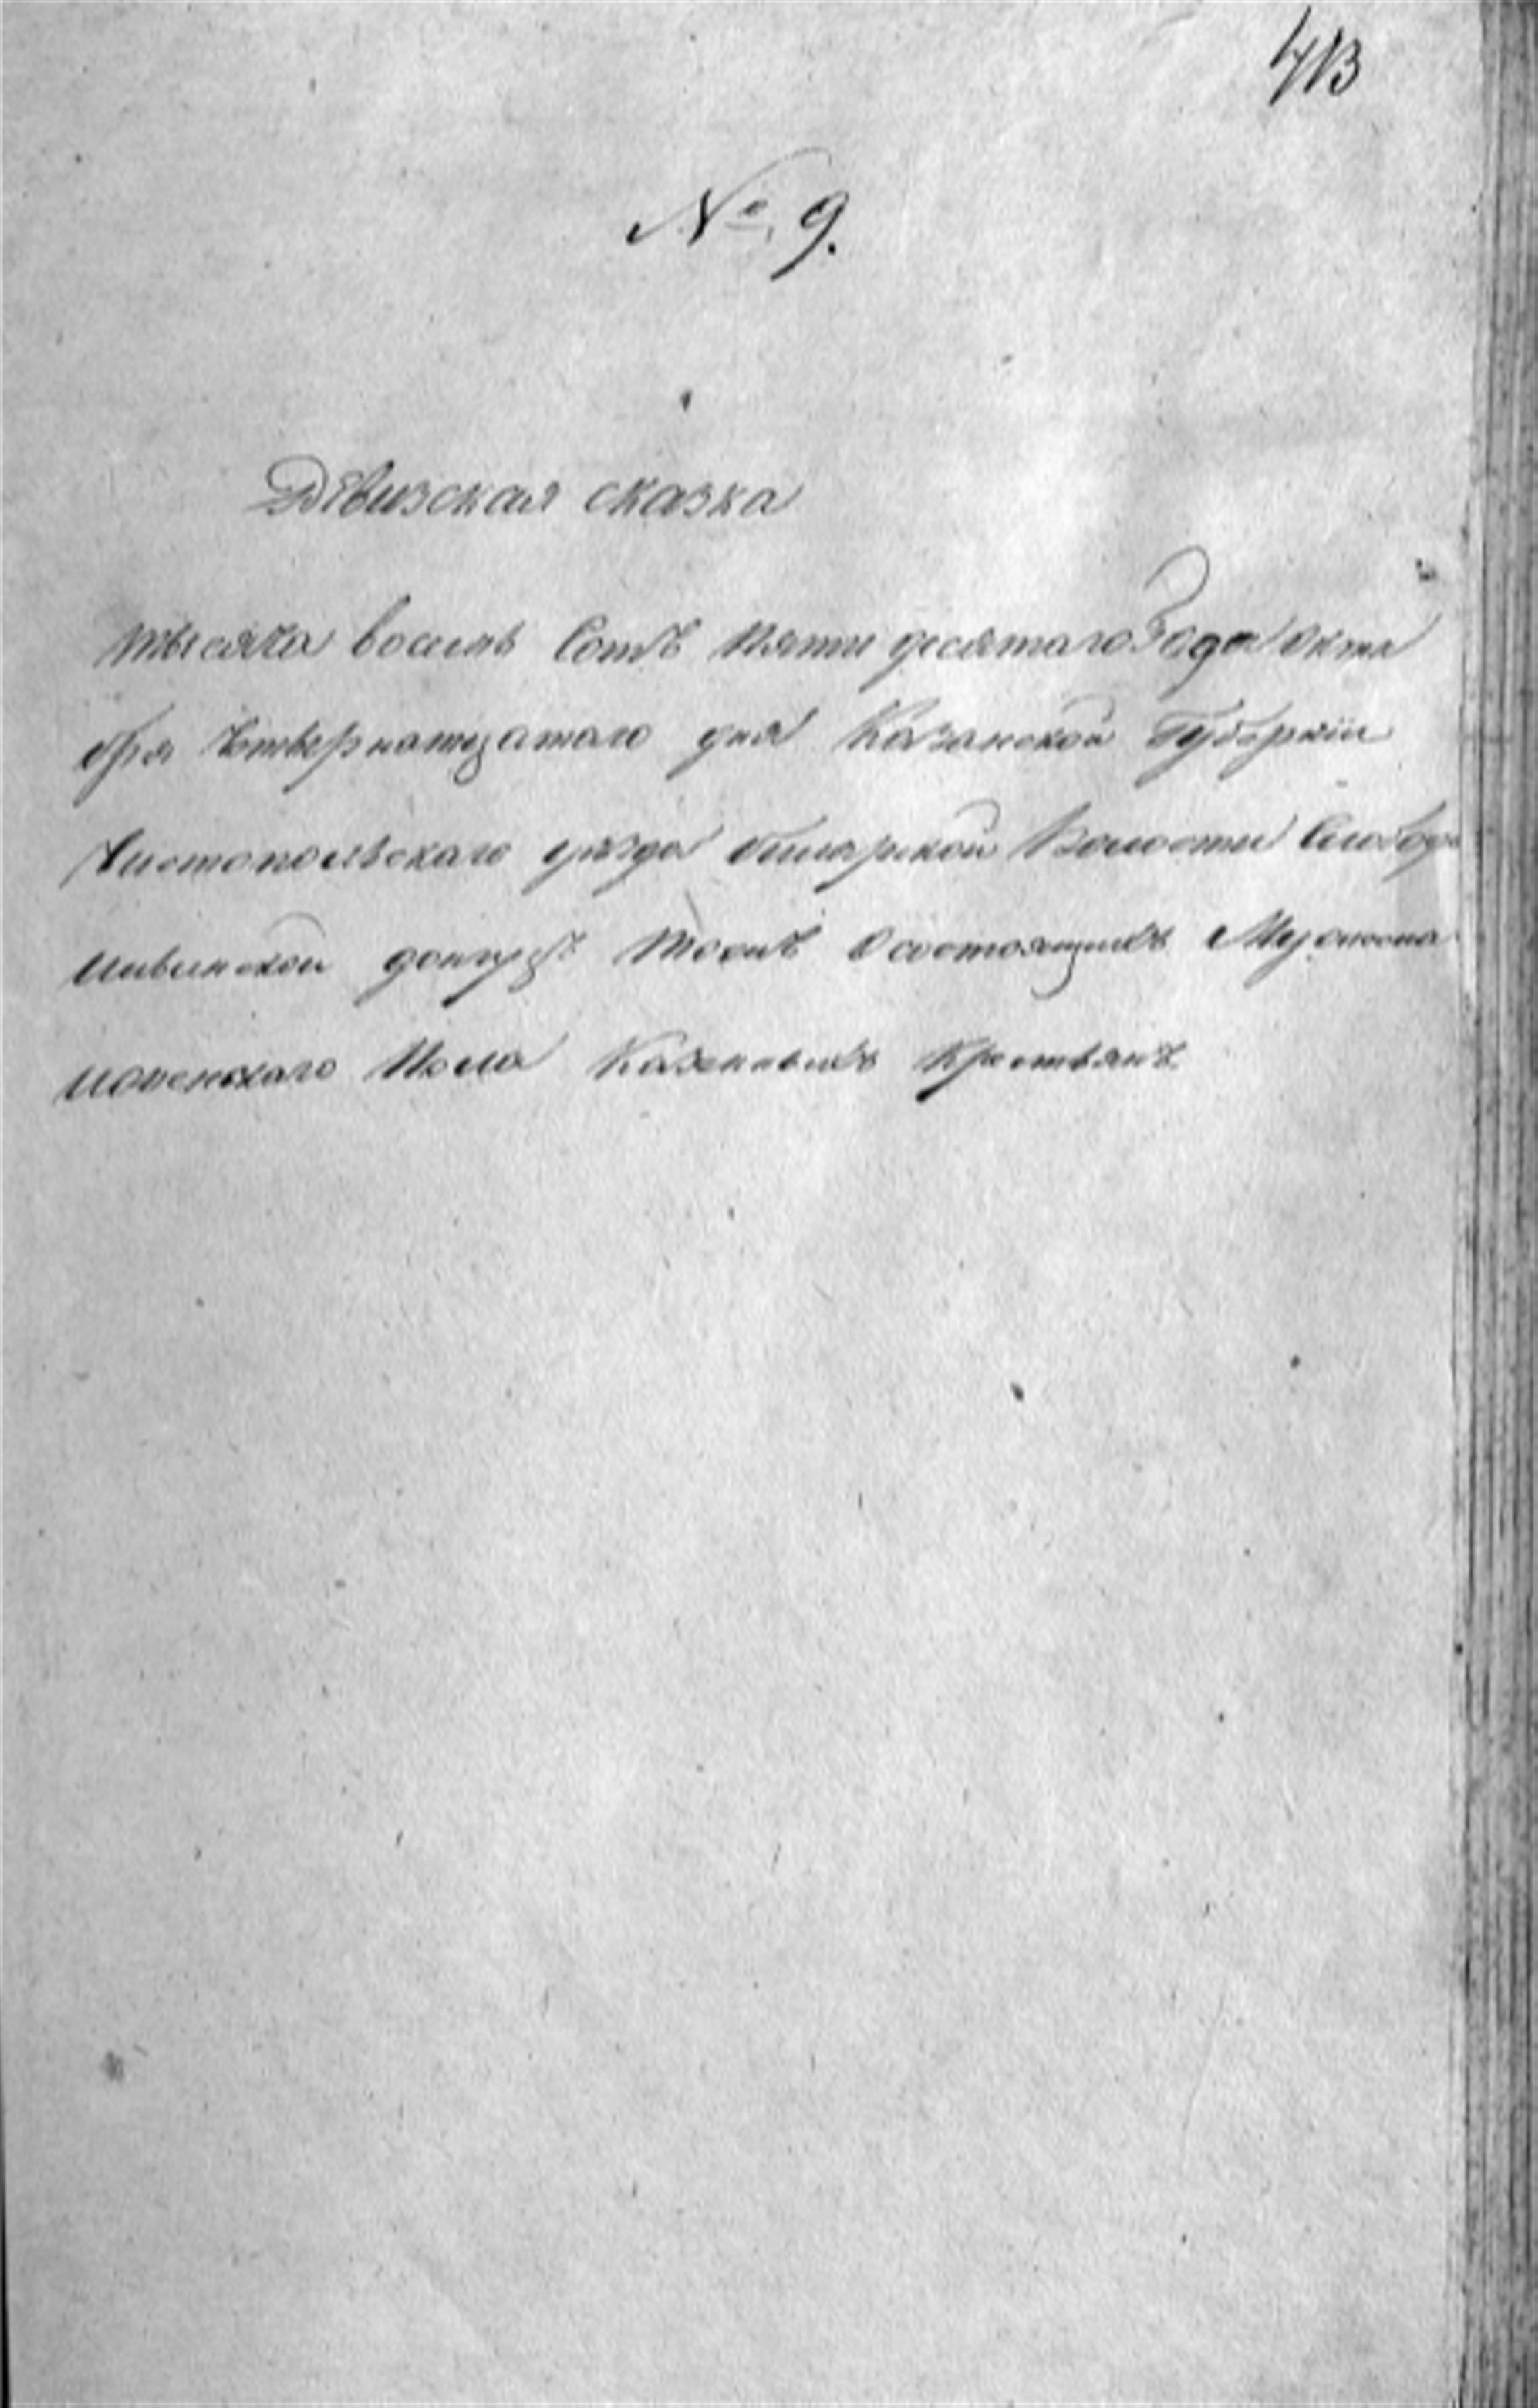 413
№ 9.
Ревизская сказка
тысяча восемь Сотъ пяти десятаго Года Октя
бря Четвернатцатаго дня Казанской Губернїи
Чистопольскаго уѣзда билярской Волости Слобод
о состоящихъ Мусюсма
новскаго Пола Казенныхъ Крестьянъ.